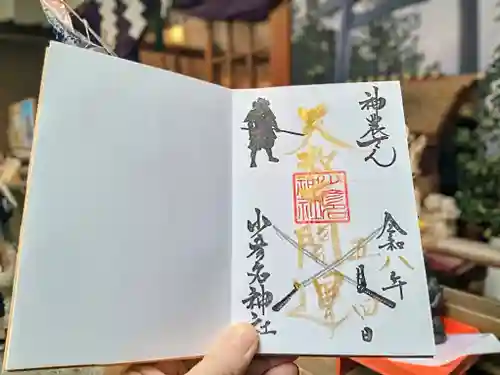 神農さん
令和八年
五月四日
開運
少彦名神社